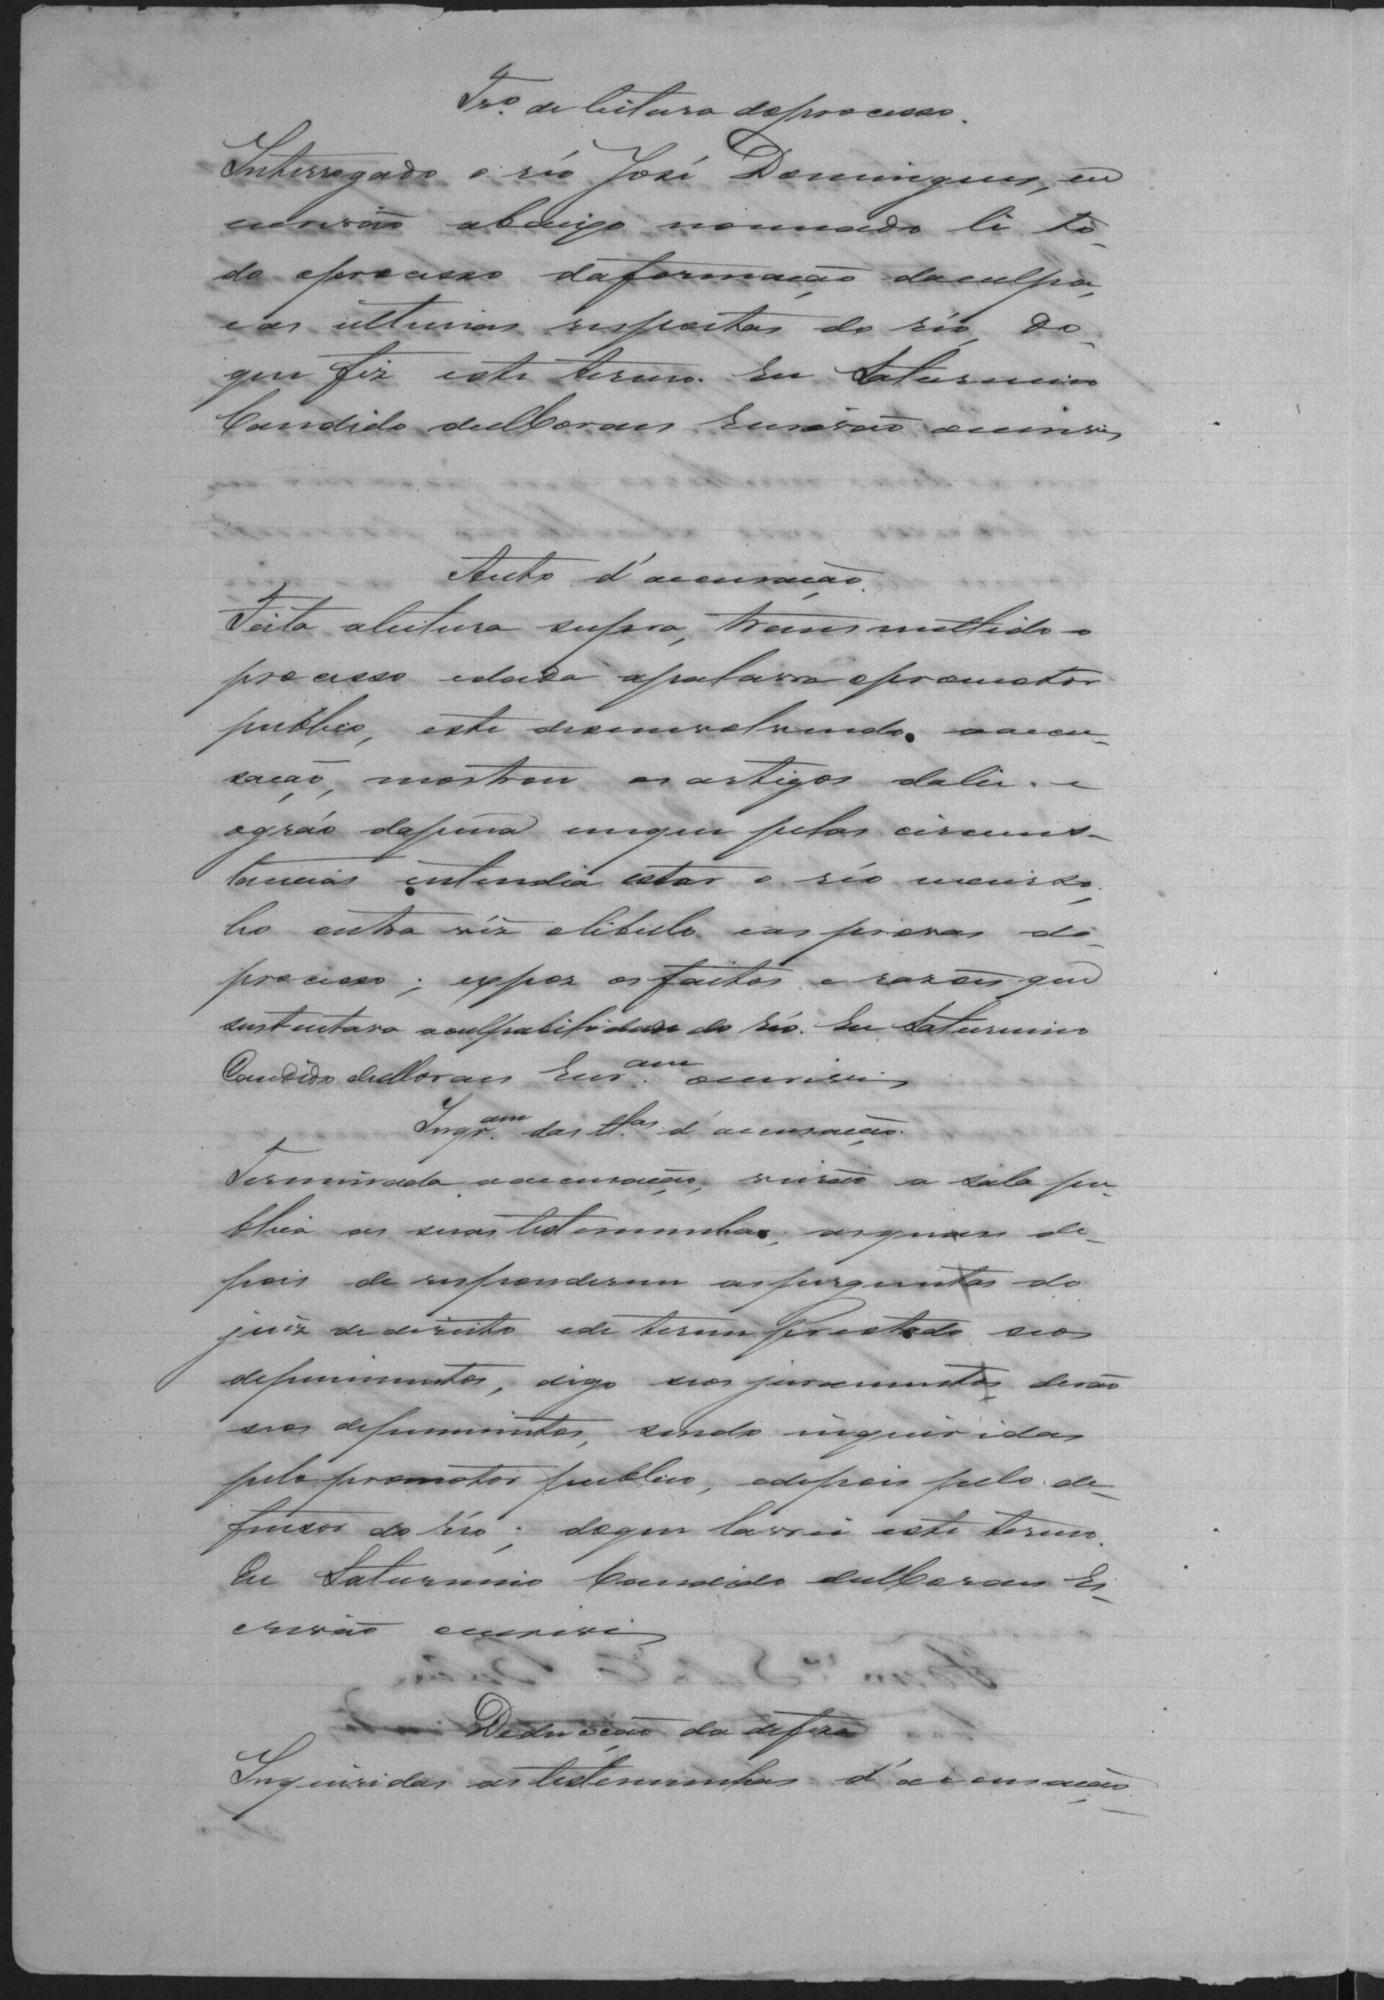 Tr.º de leitura do processo.
Interrogado o réo José Domingues, eu
escrivão abaixo nomeado li to-
do o processo da formação da culpa,
e as ultimas respostas do réo, do
que fiz este termo. Eu Saturnino
Candido de Moraes Escrivão escrevi
Auto d'accusação.
Feita a leitura supra, transmettido o
processo e dada a palavra o promotor
publico, este desenvolvendo a accu-
sação, mostrou os artigos da lei e
o gráo da pena em que pelas circums-
tancias entendia estar o réo incurso,
leo outra vêz o libello e as provas do
processo; expoz os factos e razões que
sustentava a culpabilidade do réo. Eu Saturnino
Candido de Moraes Escr.am escrevi
Inqr.am das tt.as d'accusação.
Terminada a accusação, vierão a sala pu-
blica as suas testemunhas, as quaes de-
pois de responderem as perguntas do
juiz de direito e de terem prestado seos
depuimentos, digo seos juramentos derão
seos depuimentos, sendo inqueridas
pelo promotor publico, e depois pelo de-
fensor do réo; do que lavrei este termo.
Eu Saturnino Candido de Moraes Es-
crivão escrevi
Deducção da defeza
Inqueridas as testemunhas d'accusação